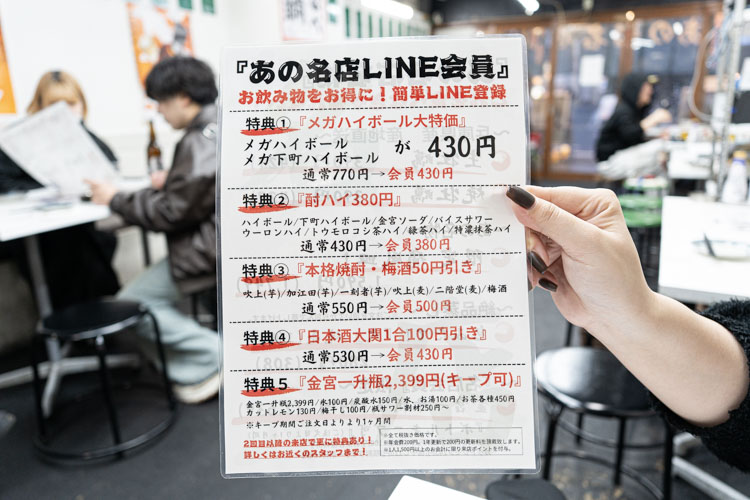 『あの名店LINE会員』
お飲み物をお得に！簡単LINE登録
特典①『メガハイボール大特価』
メガハイボール
メガ下町ハイボール が 430円
通常770円→会員430円
特典②『酎ハイ380円』
ハイボール/下町ハイボール/金宮ソーダ/バイスサワー
ウーロンハイ/トウモロコシ茶ハイ/緑茶ハイ/特濃抹茶ハイ
通常430円→会員380円
特典③『本格焼酎・梅酒50円引き』
吹上(芋)/加江田(芋)/一刻者(芋)/吹上(麦)/二階堂(麦)/梅酒
通常550円→会員500円
特典④『日本酒大関1合100円引き』
通常530円→会員430円
特典５『金宮一升瓶2,399円(キープ可)』
金宮一升瓶2,399円/氷100円/炭酸水150円/水、お湯100円/お茶各種450円
カットレモン130円/梅干し100円/瓶サワー割材250円～
※キープ期間ご注文日よりより1ヶ月間
2回目以降の来店で更に特典あり！
詳しくはお近くのスタッフまで！
※全て税抜き価格です。
※年会費200円、1年更新で200円の更新料を頂戴致します。
※1人1,500円以上のお会計に限り来店ポイントを付与。